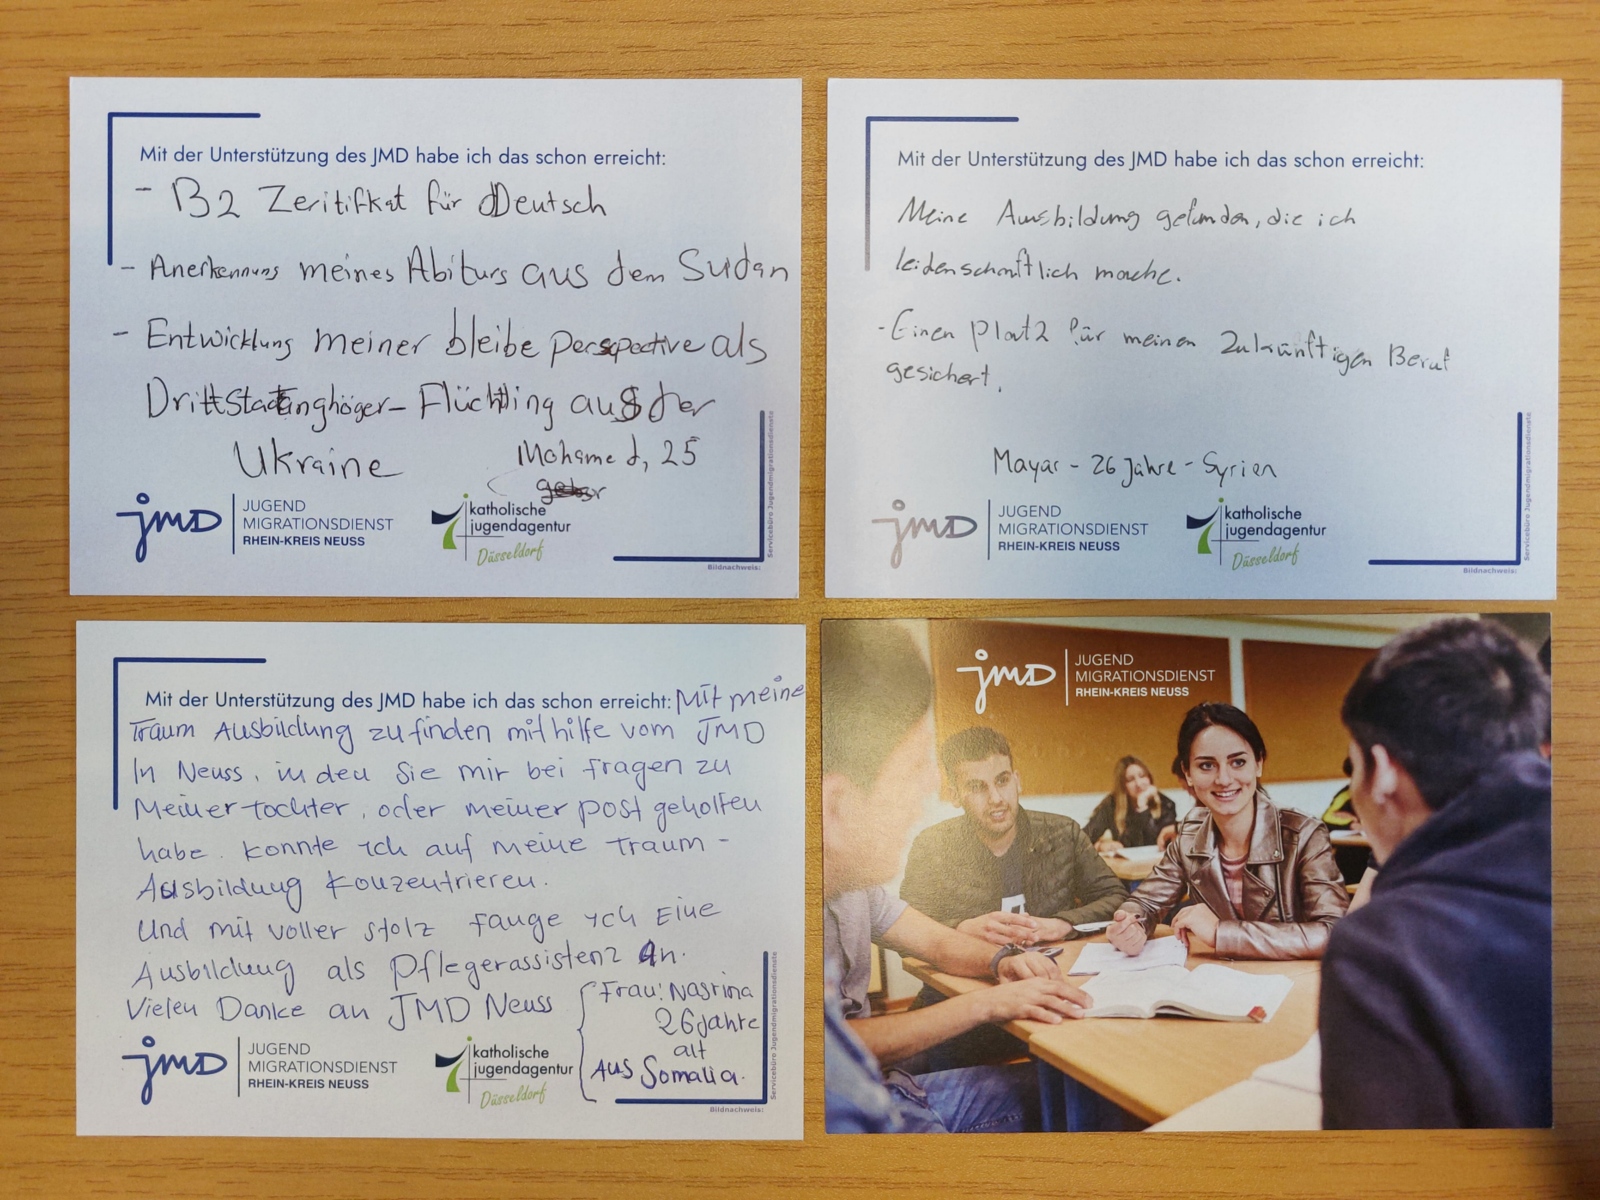 Mit der Unterstützung des JMD habe ich das schon erreicht:
- B2 Zeritifkat für Deutsch
- Anerkennung meines Abiturs aus dem Sudan
- Entwicklung meiner bleibe perspective als
Drittstatanghöger- Flüchtling aus der
Ukraine
Mohamed, 25
jmD
JUGEND
MIGRATIONSDIENST
RHEIN-KREIS NEUSS
katholische
jugendagentur
Düsseldorf
Bildnachweis:
Servicebüro Jugendmigrationsdienste
Mit der Unterstützung des JMD habe ich das schon erreicht:
Meine Ausbildung gefunden, die ich
leidenschaftlich mache.
- Einen Platz für meinen Zukünftigen Beruf
gesichert.
Mayar - 26 Jahre - Syrien
jmD
JUGEND
MIGRATIONSDIENST
RHEIN-KREIS NEUSS
katholische
jugendagentur
Düsseldorf
Bildnachweis:
Servicebüro Jugendmigrationsdienste
Mit der Unterstützung des JMD habe ich das schon erreicht: Mit meine
Traum Ausbildung zu finden mit hilfe vom JMD
In Neuss, in den Sie mir bei fragen zu
Meiner tochter, oder meiner post geholfen
habe. konnte ich auf meine Traum -
Ausbildung konzentrieren.
Und mit voller stolz fange ich Eine
Ausbildung als Pflegerassistenz An.
Vielen Danke an JMD Neuss
Frau: Nasrina
26 jahre
alt
Aus Somalia.
jmD
JUGEND
MIGRATIONSDIENST
RHEIN-KREIS NEUSS
katholische
jugendagentur
Düsseldorf
Bildnachweis:
Servicebüro Jugendmigrationsdienste
jmD
JUGEND
MIGRATIONSDIENST
RHEIN-KREIS NEUSS